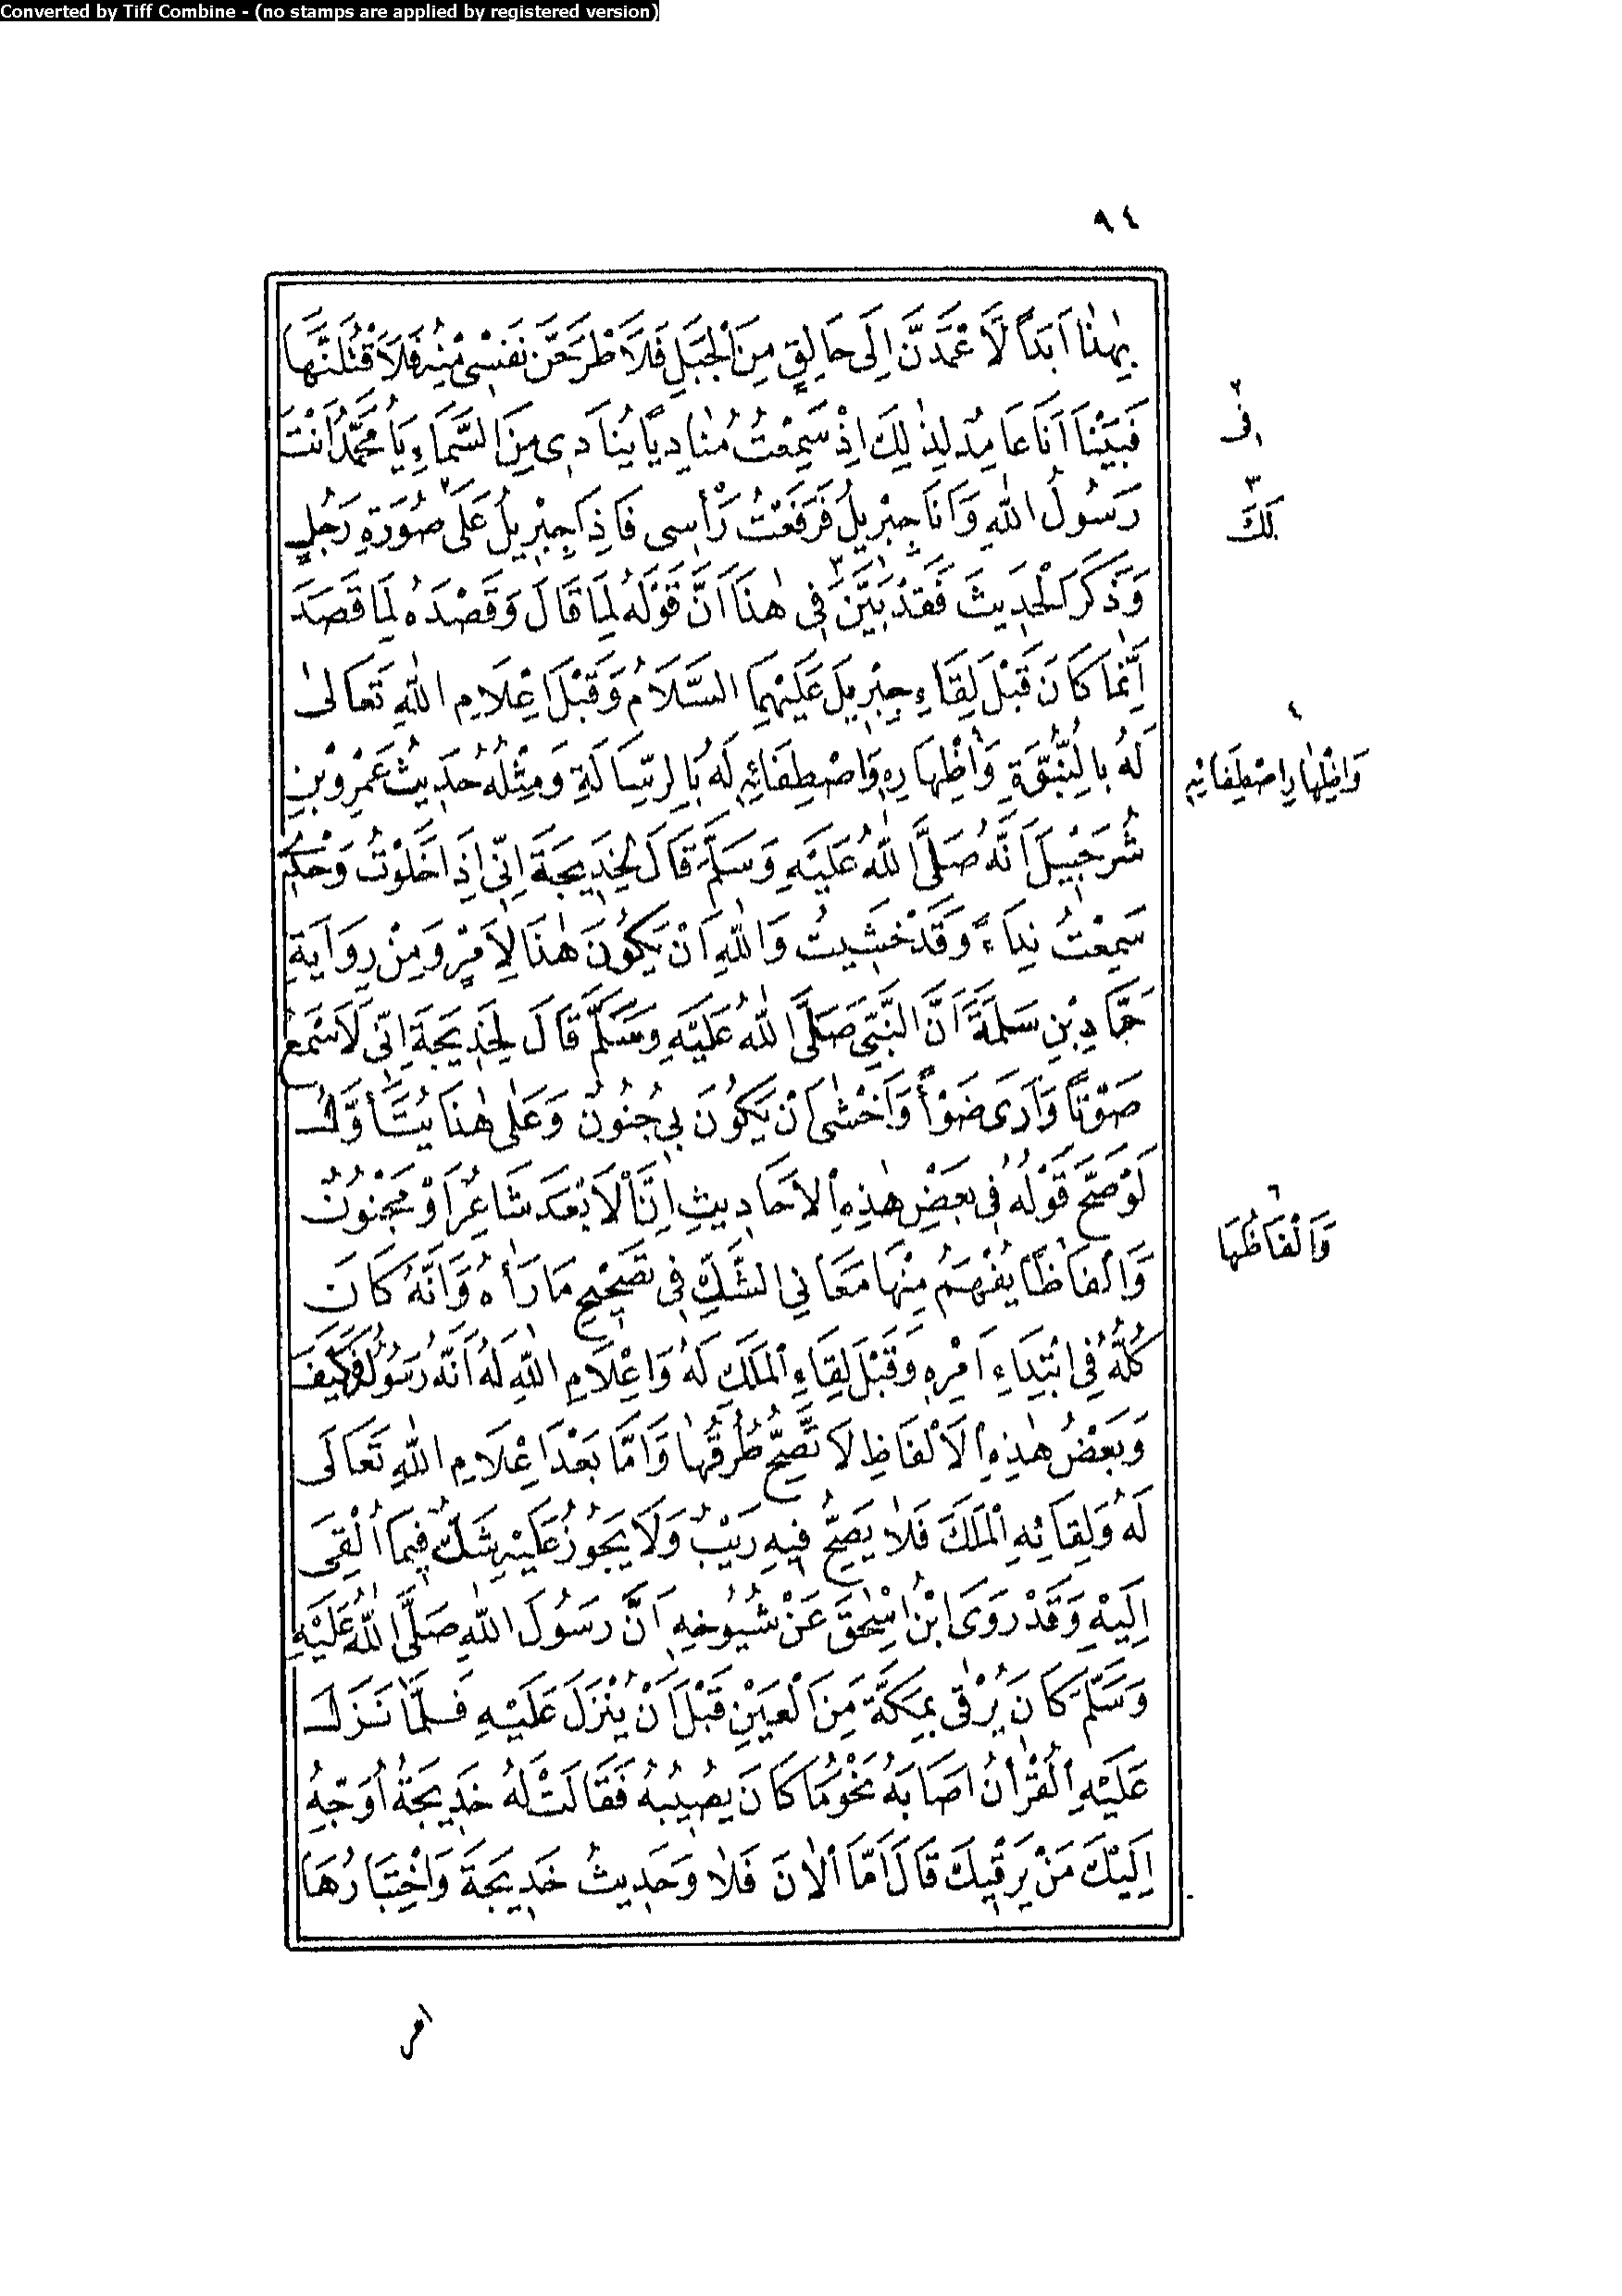 Converted by Tiff Combine - (no stamps are applied by registered version)
٩٤
بِهٰذَا اَبَدًا لَاَعْمِدَنَّ اِلَى حَالِقٍ مِنَ الْجَبَلِ فَلَاَطْرَحَنَّ نَفْسِى مِنْهُ فَلَاَقْتُلَنَّهَا
فَبَيْنَا اَنَا عَامِدٌ لِذٰلِكَ اِذْ سَمِعْتُ مُنَادِيًا يُنَادِى مِنَ السَّمَاءِ يَا مُحَمَّدُ اَنْتَ
رَسُولُ اللّٰهِ وَاَنَا جِبْرِيلُ فَرَفَعْتُ رَأْسِى فَاِذَا جِبْرِيلُ عَلَى ٢ صُورَةِ رَجُلٍ
وَذَكَرَ الْحَدِيثَ فَقَدْ بَيَّنَ ٣ فِى هٰذَا اَنَّ قَوْلَهُ لِمَا قَالَ وَقَصْدَهُ لِمَا قَصَدَ
اِنَّمَا كَانَ قَبْلَ لِقَاءِ جِبْرِيلَ عَلَيْهِمَا السَّلَامُ وَقَبْلَ اِعْلَامِ اللّٰهِ تَعَالٰى
لَهُ بِالنُّبُوَّةِ وَاِظْهَارِهِ وَاصْطِفَائِهِ لَهُ بِالرِّسَالَةِ وَمِثْلُهُ حَدِيثُ عَمْرِو بْنِ
شُرَحْبِيلَ اَنَّهُ صَلَّى اللّٰهُ عَلَيْهِ وَسَلَّمَ قَالَ لِخَدِيجَةَ اِنِّى اِذَا خَلَوْتُ وَحْدِى
سَمِعْتُ نِدَاءً وَقَدْ خَشِيتُ وَاللّٰهِ اَنْ يَكُونَ هٰذَا لِاَمْرٍ وَمِنْ رِوَايَةِ
حَمَّادِ بْنِ سَلَمَةَ اَنَّ النَّبِىَّ صَلَّى اللّٰهُ عَلَيْهِ وَسَلَّمَ قَالَ لِخَدِيجَةَ اِنِّى لَاَسْمَعُ
صَوْتًا وَاَرَى ضَوْأً وَاَخْشٰى اَنْ يَكُونَ بِى جُنُونٌ وَعَلٰى هٰذَا يُتَأَوَّلُ
لَوْ صَحَّ قَوْلُهُ فِى بَعْضِ هٰذِهِ الْاَحَادِيثِ اِنَّ الْاَبْعَدَ شَاعِرٌ اَوْ مَجْنُونٌ
وَاَلْفَاظًا يُفْهَمُ مِنْهَا مَعَانِى الشَّكِّ فِى تَصْحِيحِ مَا رَاٰهُ وَاَنَّهُ كَانَ
كُلُّهُ فِى ابْتِدَاءِ اَمْرِهِ وَقَبْلَ لِقَاءِ الْمَلَكِ لَهُ وَاِعْلَامِ اللّٰهِ لَهُ اَنَّهُ رَسُولُهُ فَكَيْفَ
وَبَعْضُ هٰذِهِ الْاَلْفَاظِ لَا تَصِحُّ طُرُقُهَا وَاَمَّا بَعْدَ اِعْلَامِ اللّٰهِ تَعَالَى
لَهُ وَلِقَائِهِ الْمَلَكَ فَلَا يَصِحُّ فِيهِ رَيْبٌ وَلَا يَجُوزُ عَلَيْهِ شَكٌّ فِيمَا اُلْقِىَ
اِلَيْهِ وَقَدْ رَوَى ابْنُ اِسْحٰقَ عَنْ شُيُوخِهِ اَنَّ رَسُولَ اللّٰهِ صَلَّى اللّٰهُ عَلَيْهِ
وَسَلَّمَ كَانَ يُرْقٰى بِمَكَّةَ مِنَ الْعَيْنِ قَبْلَ اَنْ يُنْزَلَ عَلَيْهِ فَلَمَّا نَزَلَ
عَلَيْهِ الْقُرْاٰنُ اَصَابَهُ نَحْوُ مَا كَانَ يُصِيبُهُ فَقَالَتْ لَهُ خَدِيجَةُ اُوَجِّهُ
اِلَيْكَ مَنْ يَرْقِيكَ قَالَ اَمَّا الْاٰنَ فَلَا وَحَدِيثُ خَدِيجَةَ وَاخْتِبَارُهَا
٢
فِى
٣
لَكَ
٤
وَاِظْهَارِ اصْطِفَائِهِ
٦
وَاَلْفَاظُهَا
امر